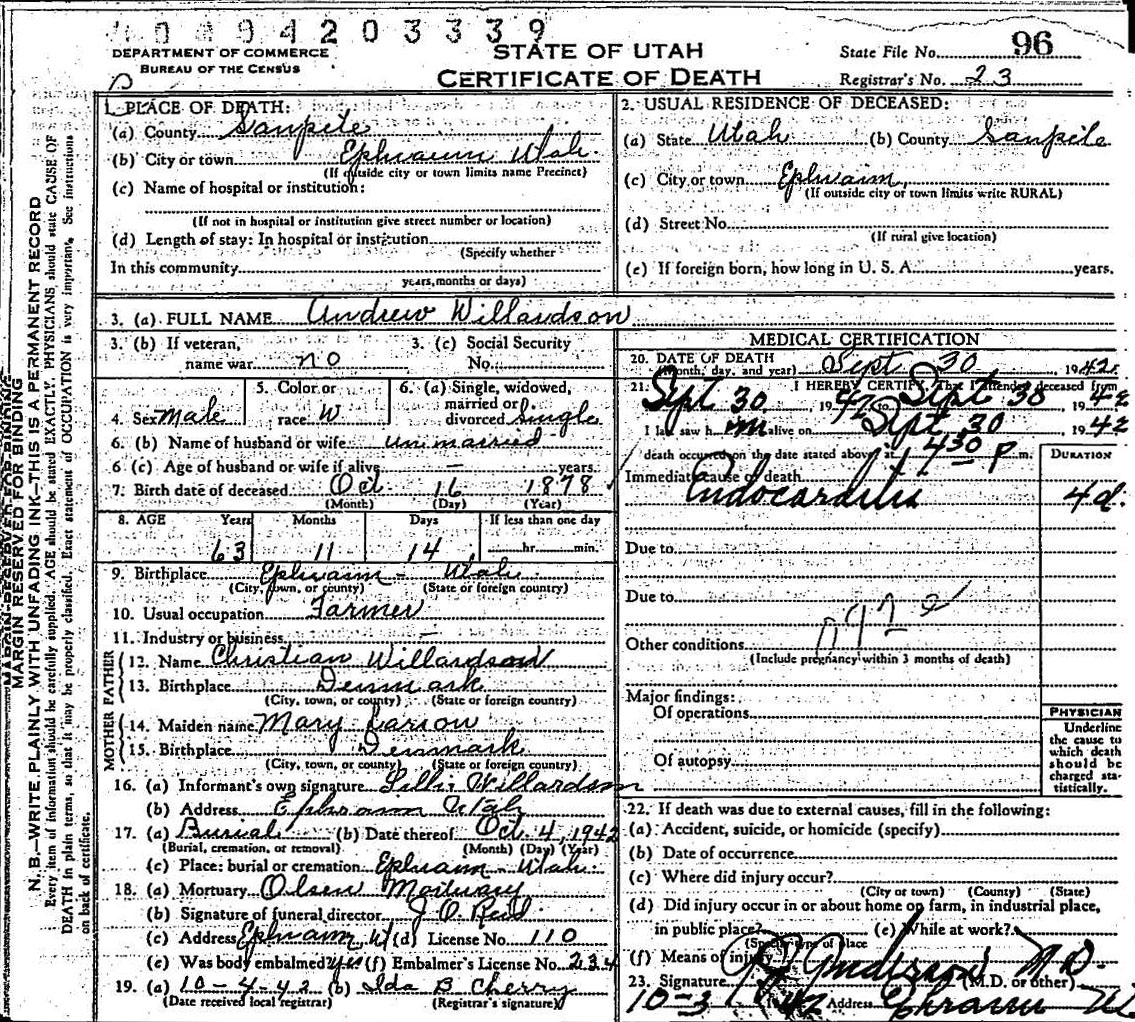 0 9 4 2 0 3 3 3 9
DEPARTMENT OF COMMERCE
BUREAU OF THE CENSUS
STATE OF UTAH
CERTIFICATE OF DEATH
State File No. 96
Registrar's No. 23
MARGIN RESERVED FOR BINDING
N. B.—WRITE PLAINLY WITH UNFADING INK—THIS IS A PERMANENT RECORD
Every item of information should be carefully supplied. AGE should be stated EXACTLY. PHYSICIANS should state CAUSE OF
DEATH in plain terms, so that it may be properly classified. Exact statement of OCCUPATION is very important. See instructions
on back of certificate.
1. PLACE OF DEATH:
(a) County Sanpete
(b) City or town Ephraim Utah
(If outside city or town limits name Precinct)
(c) Name of hospital or institution:
(If not in hospital or institution give street number or location)
(d) Length of stay: In hospital or institution
(Specify whether
In this community
years, months or days)
2. USUAL RESIDENCE OF DECEASED:
(a) State Utah (b) County Sanpete
(c) City or town Ephraim,
(If outside city or town limits write RURAL)
(d) Street No.
(If rural give location)
(e) If foreign born, how long in U. S. A. years.
3. (a) FULL NAME Andrew Willardson
3. (b) If veteran,
name war no
3. (c) Social Security
No.
4. Sex Male
5. Color or
race W
6. (a) Single, widowed,
married or
divorced Single
6. (b) Name of husband or wife unmarried
6 (c) Age of husband or wife if alive — years.
7. Birth date of deceased Oct 16 1878
(Month) (Day) (Year)
8. AGE Years Months Days If less than one day
63 11 14 hr. min.
9. Birthplace Ephraim - Utah
(City, town, or county) (State or foreign country)
10. Usual occupation Farmer
11. Industry or business —
FATHER
12. Name Christian Willardson
13. Birthplace Denmark
(City, town, or county) (State or foreign country)
MOTHER
14. Maiden name Mary Larson
15. Birthplace Denmark
(City, town, or county) (State or foreign country)
16. (a) Informant's own signature Lillie Willardson
(b) Address Ephraim Utah
17. (a) Burial (b) Date thereof Oct 4, 1942
(Burial, cremation, or removal) (Month) (Day) (Year)
(c) Place: burial or cremation Ephraim - Utah
18. (a) Mortuary Olsen Mortuary
(b) Signature of funeral director J O Reid
(c) Address Ephraim, U (d) License No. 110
(e) Was body embalmed? yes (f) Embalmer's License No. 234
19. (a) 10-4-42 (b) Ida B Cherry
(Date received local registrar) (Registrar's signature)
MEDICAL CERTIFICATION
20. DATE OF DEATH Sept 30 1942
(Month, day, and year)
21. I HEREBY CERTIFY, That I attended deceased from
Sept 30, 1942 to Sept 30 1942
I last saw him alive on Sept 30 1942
death occurred on the date stated above at 430 P m.
DURATION
Immediate cause of death
Endocarditis 4 d.
Due to
Due to
092 e
Other conditions
(Include pregnancy within 3 months of death)
Major findings:
Of operations
Of autopsy
PHYSICIAN
Underline
the cause to
which death
should be
charged sta-
tistically.
22. If death was due to external causes, fill in the following:
(a) Accident, suicide, or homicide (specify)
(b) Date of occurrence
(c) Where did injury occur?
(City or town) (County) (State)
(d) Did injury occur in or about home on farm, in industrial place,
in public place? (e) While at work?
(Specify type of place
(f) Means of injury
23. Signature Anderson M.D.
(M.D. or other)
10-3 42 Address Ephraim Ut